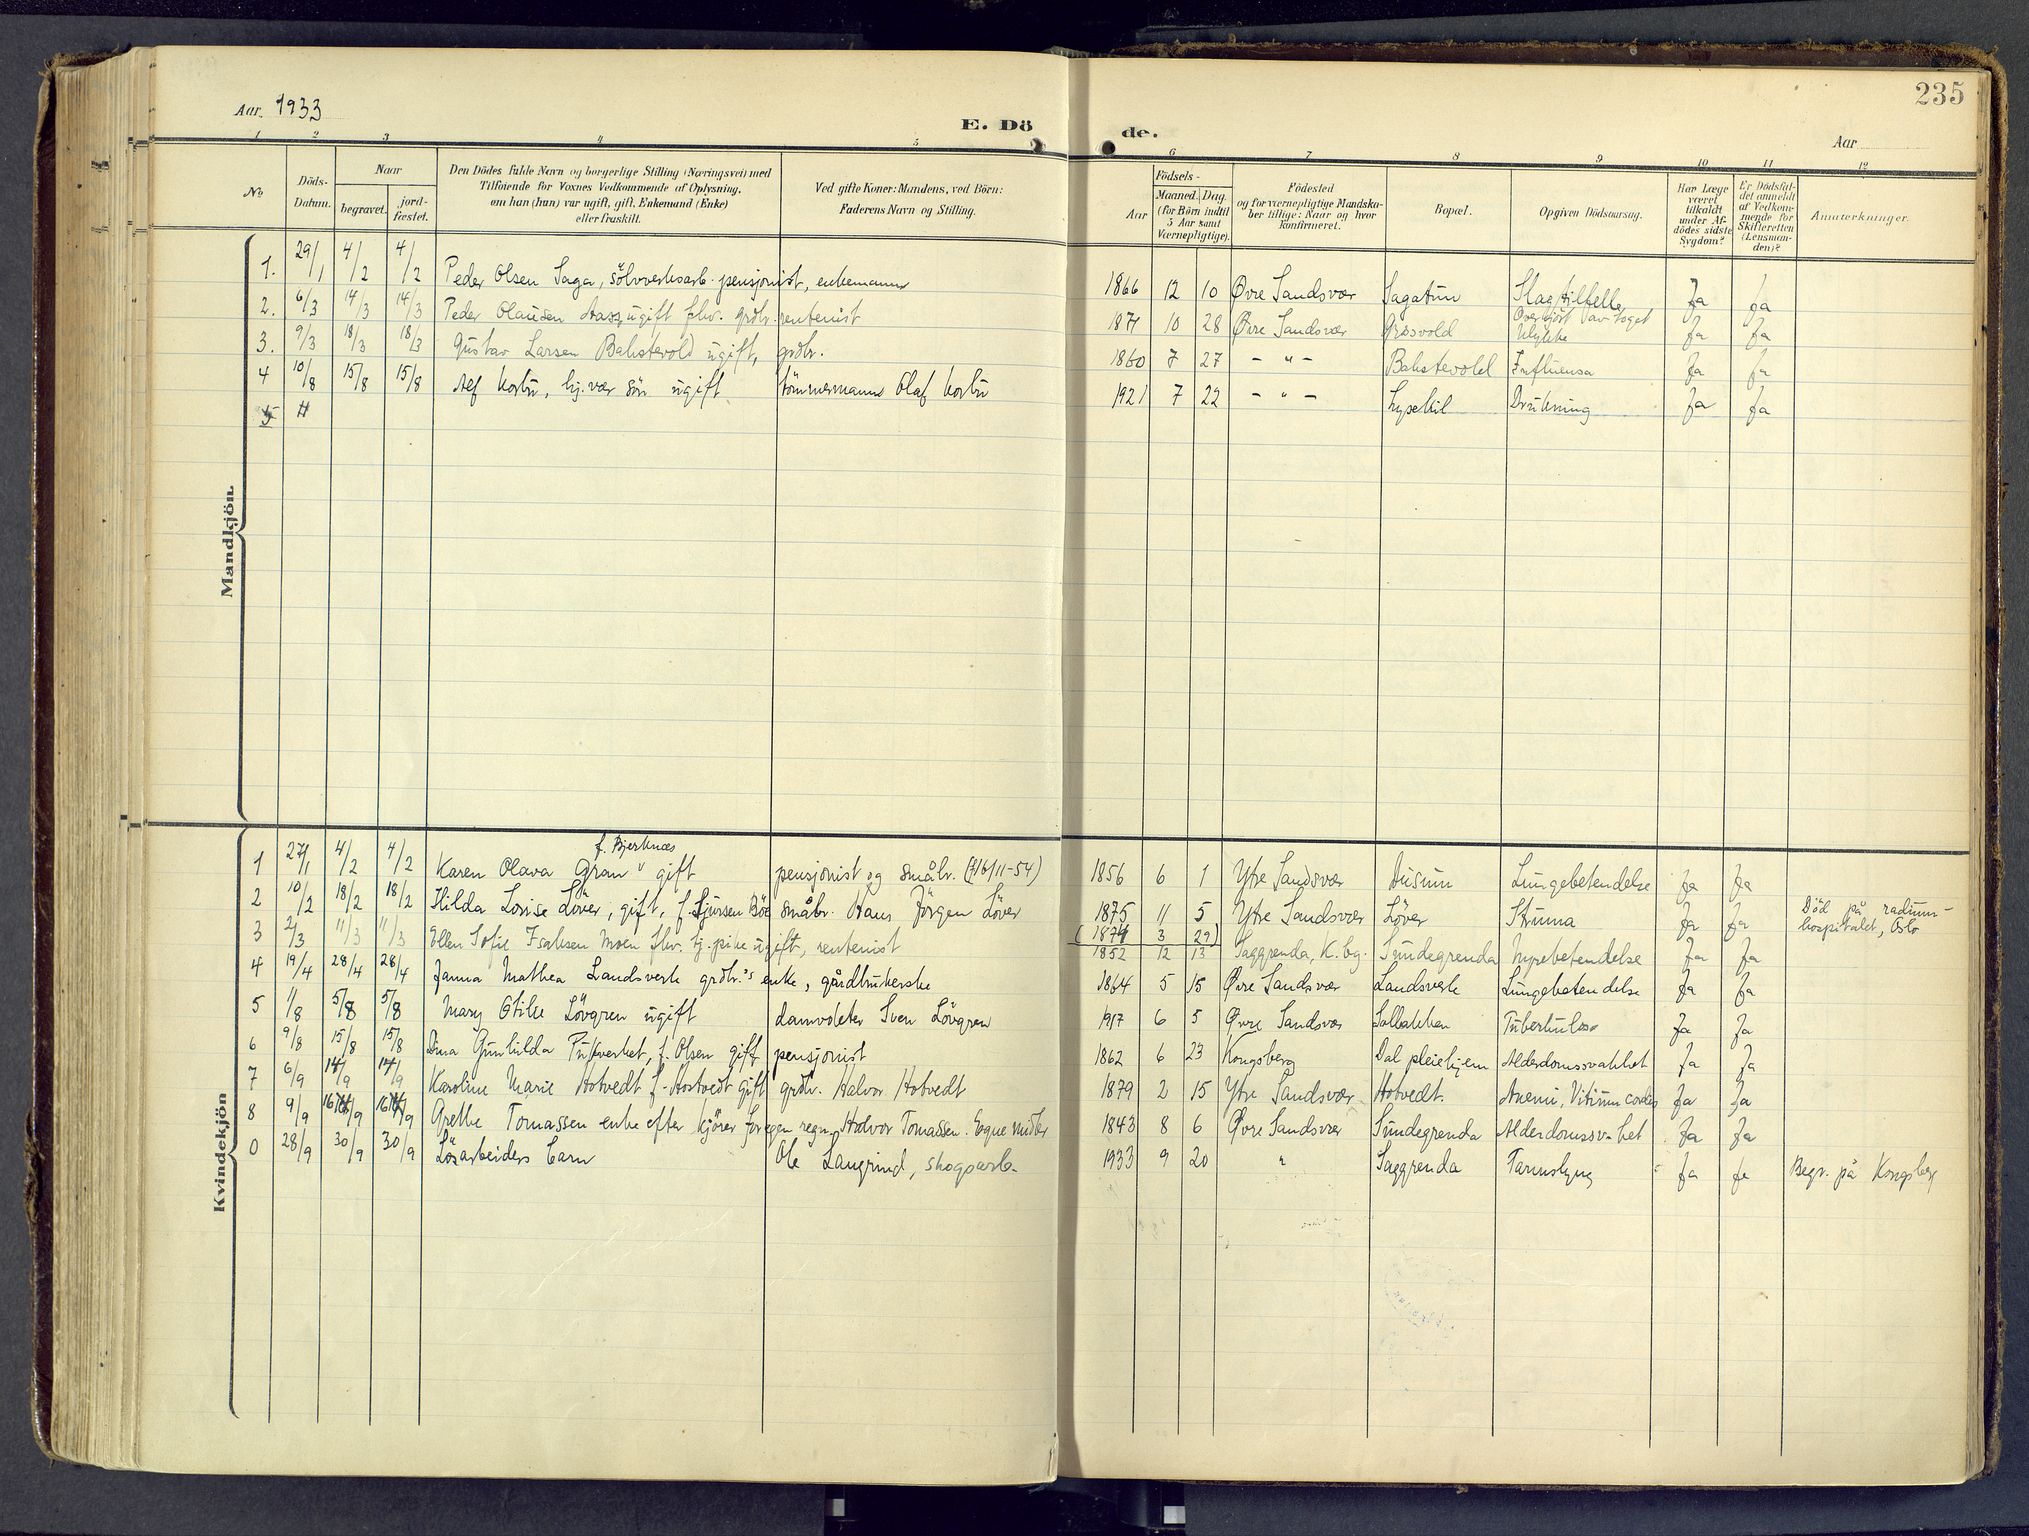 235
Aar. 1933
E. Dö
de.
Aar
1 2 3 4 5 6 7 8 9 10 11 12
No
Döds-Datum.
Naar
begravet.
jord-fæstet.
Den Dödes fulde Navn og borgerlige Stilling (Næringsvei) med
Tilföiende for Voxnes Vedkommende af Oplysning,
om han (hun) var ugift, gift, Enkemand (Enke)
eller fraskilt.
Ved gifte Koner: Mandens, ved Börn:
Faderens Navn og Stilling.
Födsels-
Aar
Maaned. Dag.
(for Börn indtil
5 Aar samt
Værnepligtige).
Födested
og for værnepligtige Mandska-
ber tillige: Naar og hvor
konfirmeret.
Bopæl.
Opgiven Dödsaarsag.
Har Læge
været
tilkaldt
under Af-
dödes sidste
Sygdom?
Er Dödsfal-
det anmeldt
af Vedkom-
mende for
Skifteretten
(Lensman-
den)?
Anmærkninger.
Mandkjön.
1. 29/1 4/2 4/2 Peder Olsen Saga, sölvverksarb. pensjonist, enkemann 1866 12 10 Øvre Sandsvær Sagatun Slagtilfelle Ja ja
2. 6/3 14/3 14/3 Peder Olausen ugift fhv. grdbr. rentenist 1871 10 28 Øvre Sandsvær Grosvold Overkjört av toget Ulykke Ja Ja
3. 9/3 18/3 18/3 Gustav Larsen Bakstevold ugift, grdbr. 1860 7 27 - " - Bakstevold Influensa Ja ja
4 10/8 15/8 15/8 Alf Kortu, hj. vær. sön ugift tömmermann Olaf Kortu 1921 7 22 - " - Lysekil Drukning Ja Ja
5 11
Kvindekjön
f. Bjerknes
1 27/1 4/2 4/2 Karen Olava Gran " gift pensjonist og småbr. (16/11-54) 1856 6 1 Ytre Sandsvær Dusun Lungebetendelse ja ja
2 10/2 18/2 18/2 Hilda Lovise Löver, gift, f. Sjursen Böe småbr. Hans Jörgen Löver 1875 11 5 Ytre Sandsvær Löver Struma Ja Ja Död på radium-
hospitalet, Oslo
(1874 3 29)
3 2/3 11/3 11/3 Ellen Sofie Isaksen Moen fhv. tj. pike ugift, rentenist 1852 12 13 Saggrenda, K.bg. Sundegrenda Nyrebetendelse Ja Ja
4 19/4 28/4 28/4 Janna Mathea Landsverk grdbr.'s enke, gårdbrukerske 1864 5 15 Øvre Sandsvær Landsverk Lungebetendelse Ja Ja
5 1/8 5/8 5/8 Mary Otilie Lövgren ugift damvokter Sven Lövgren 1917 6 5 Øvre Sandsvær Solbakken Tuberkulose Ja Ja
6 9/8 15/8 15/8 Dina Gunhilda Pukverket, f. Olsen gift pensjonist 1862 6 23 Kongsberg Dal pleiehjem Alderdomssvakhet Ja Ja
7 6/9 14/9 14/9 Karoline Marie Hotvedt f. Hostvedt gift grdbr. Halvor Hotvedt 1879 2 15 Ytre Sandsvær Hotvedt. Anemi, Vitium cordis Ja Ja
8 9/9 16/9 16/9 Grethe Tomassen enke efter kjörer for egen regn. Halvor Tomassen. Egne midler 1843 8 6 Øvre Sandsvær Sundegrenda Alderdomssv.het Ja Ja
0 28/9 30/9 30/9 Lösarbeiders barn Ole Langrind, skogsarb. 1933 9 20 " Saggrenda Tarmslyng Ja Ja Begr. på Kongsberg